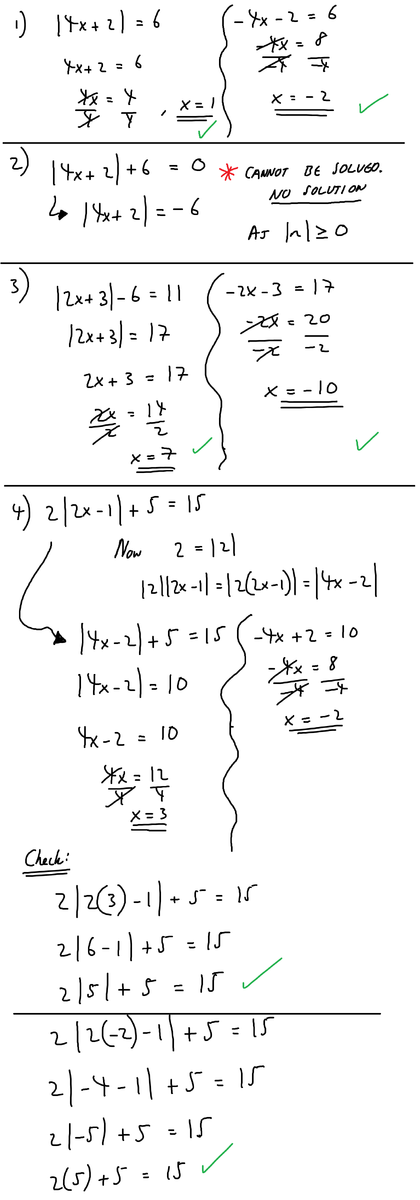 1) |4x+2| = 6
4x+2 = 6
4x/4 = 4/4, x=1 ✓
-4x-2 = 6
-4x/-4 = 8/-4
x = -2 ✓
2) |4x+2|+6 = 0
↳ |4x+2| = -6
* CANNOT BE SOLVED.
NO SOLUTION
AS |n| ≥ 0
3) |2x+3|-6 = 11
|2x+3| = 17
2x+3 = 17
2x/2 = 14/2
x=7 ✓
-2x-3 = 17
-2x/-2 = 20/-2
x = -10 ✓
4) 2|2x-1|+5 = 15
Now 2 = |2|
|2||2x-1| = |2(2x-1)| = |4x-2|
|4x-2|+5 = 15
|4x-2| = 10
4x-2 = 10
4x/4 = 12/4
x=3
-4x+2 = 10
-4x/-4 = 8/-4
x = -2
Check:
2|2(3)-1|+5 = 15
2|6-1|+5 = 15
2|5|+5 = 15 ✓
2|2(-2)-1|+5 = 15
2|-4-1|+5 = 15
2|-5|+5 = 15
2(5)+5 = 15 ✓